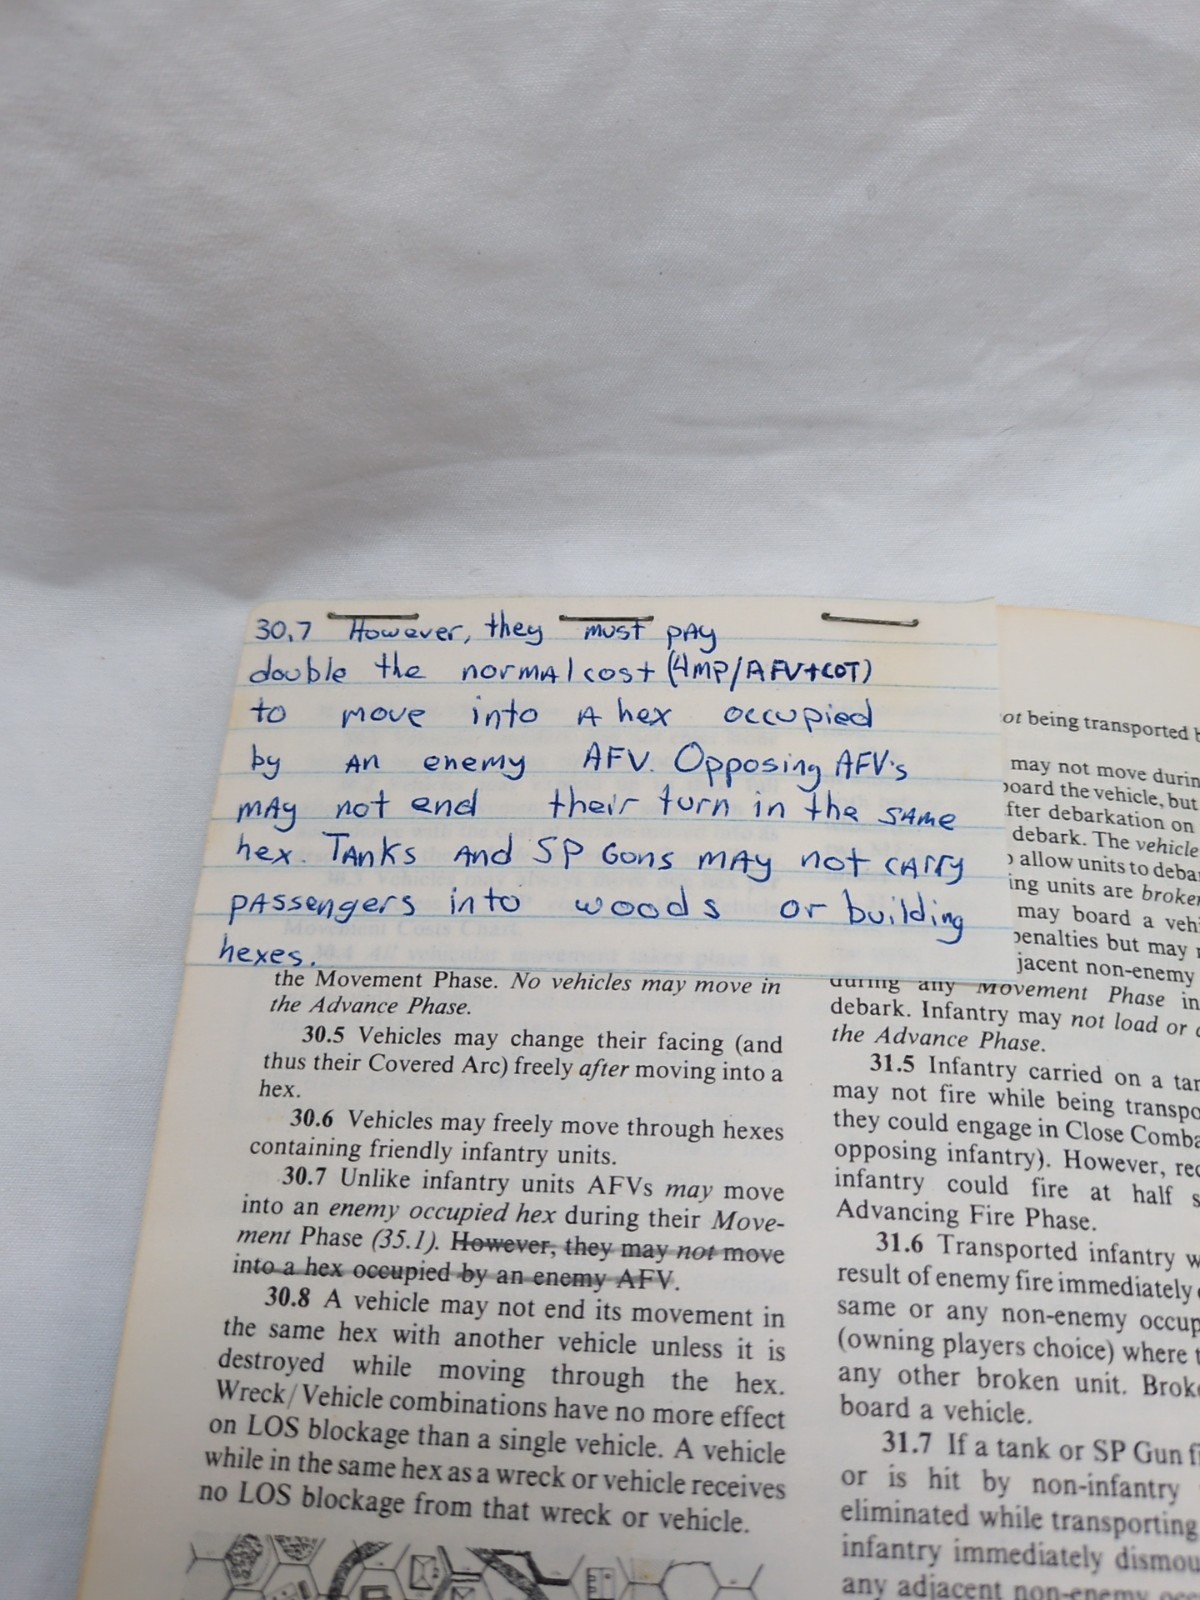 30.7 However, they must pay
double the normal cost (4MP/AFV+COT)
to move into A hex occupied
by an enemy AFV. Opposing AFV's
may not end their turn in the same
hex. Tanks and SP Guns may not carry
passengers into woods or building
hexes.
the Movement Phase. No vehicles may move in
the Advance Phase.
30.5 Vehicles may change their facing (and
thus their Covered Arc) freely after moving into a
hex.
30.6 Vehicles may freely move through hexes
containing friendly infantry units.
30.7 Unlike infantry units AFVs may move
into an enemy occupied hex during their Move-
ment Phase (35.1). However, they may not move
into a hex occupied by an enemy AFV.
30.8 A vehicle may not end its movement in
the same hex with another vehicle unless it is
destroyed while moving through the hex.
Wreck/Vehicle combinations have no more effect
on LOS blockage than a single vehicle. A vehicle
while in the same hex as a wreck or vehicle receives
no LOS blockage from that wreck or vehicle.
being transported
may not move
the vehicle, but
debarkation on
debark. The vehicle
allow units to
units are
may board a
penalties but may
non-enemy
during any Movement Phase in
debark. Infantry may not load or
the Advance Phase.
31.5 Infantry carried on a
may not fire while being
they could engage in Close
opposing infantry). However,
infantry could fire at half
Advancing Fire Phase.
31.6 Transported infantry
result of enemy fire immediately
same or any non-enemy
(owning players choice) where
any other broken unit.
board a vehicle.
31.7 If a tank or SP Gun
or is hit by non-infantry
eliminated while transporting
infantry immediately
any adjacent non-enemy